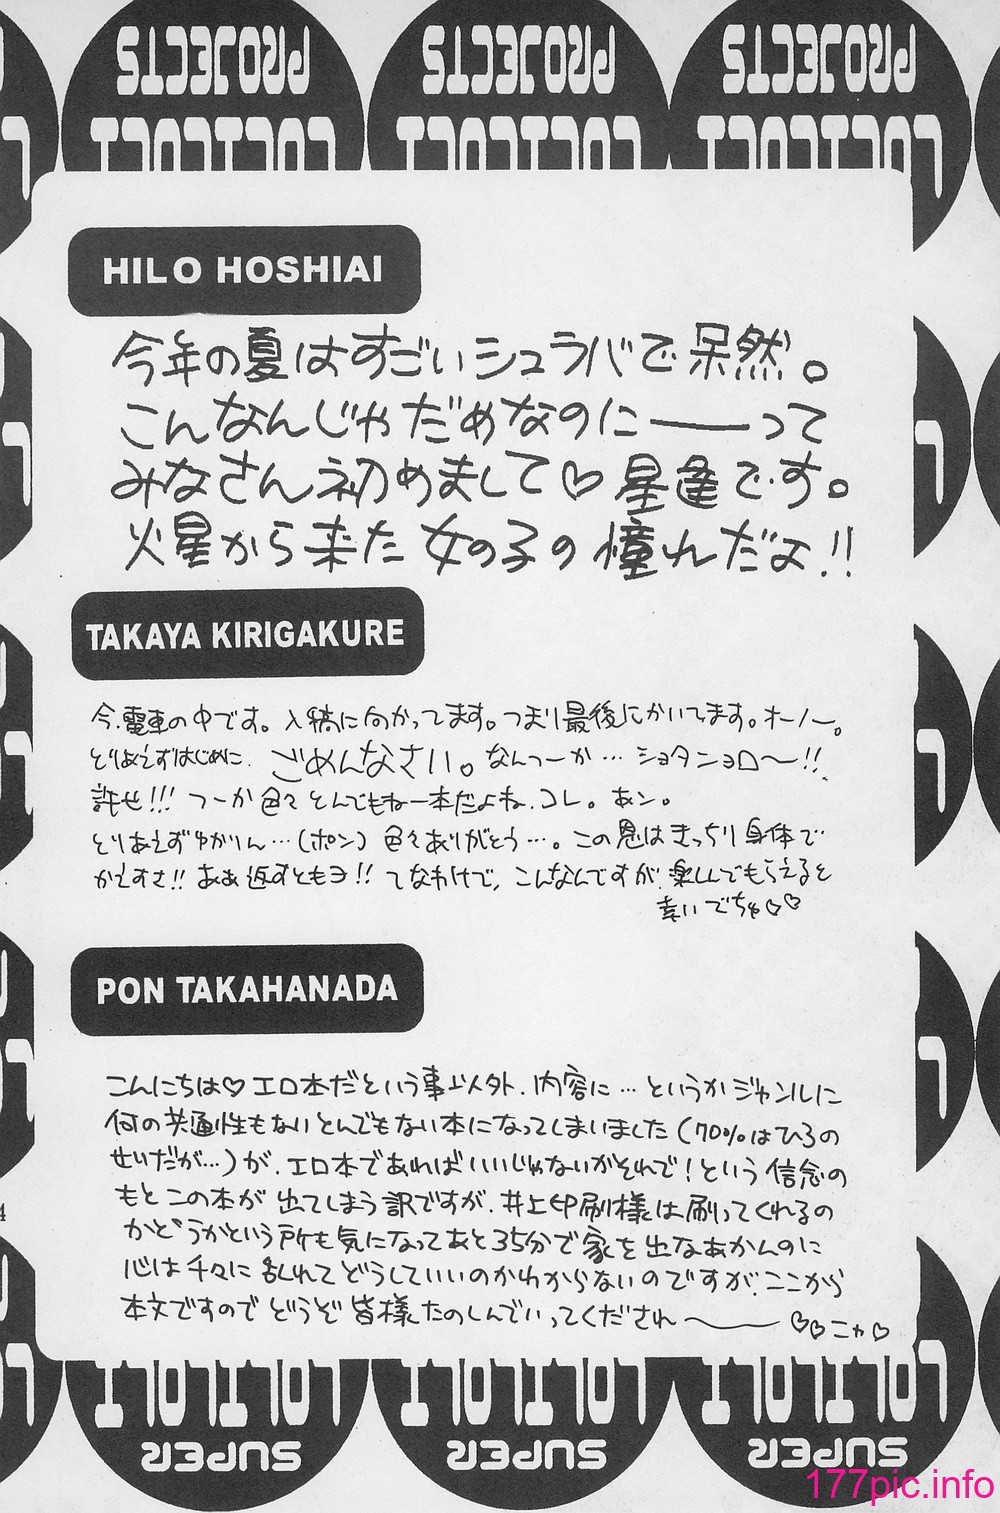 PROJECTS PROJECTS PROJECTS
LOLILOLI LOLILOLI LOLILOLI
HILO HOSHIAI
今年の夏はすごいシュラバで呆然。
こんなんじゃだめなのに――って
みなさん初めまして♡星逢です。
火星から来た女の子の憧れだよ!!
TAKAYA KIRIGAKURE
今、電車の中です。入稿に向かってます。つまり最後にかいてます。オーノー。
とりあえずはじめに、ごめんなさい。なんつーか…ショタンョロ〜!!
許せ!!! つーか色々とんでもねー本だよね、コレ。あン。
とりあえずゆかりん…(ポン)色々ありがとう…。この恩はきっちり身体で
かえすさ!! ああ返すともヨ!! てなわけで、こんなんですが、楽しんでもらえると
幸いでちゅ♡♡
PON TAKAHANADA
こんにちは♡エロ本だという事以外、内容に…というかジャンルに
何の共通性もないとんでもない本になってしまいました(70%はひろの
せいだが…)が、エロ本であればいいじゃないかそれで!という信念の
もとこの本が出てしまう訳ですが、井上印刷様は刷ってくれるの
かどうかという所も気になってあと35分で家を出なあかんのに
心は千々に乱れてどうしていいのかわからないのですが、ここから
本文ですのでどうぞ皆様たのしんでいってくだされ〜 ♡♡ニャ♡
4
LOLILOLI LOLILOLI LOLILOLI
SUPER SUPER SUPER
177pic.info